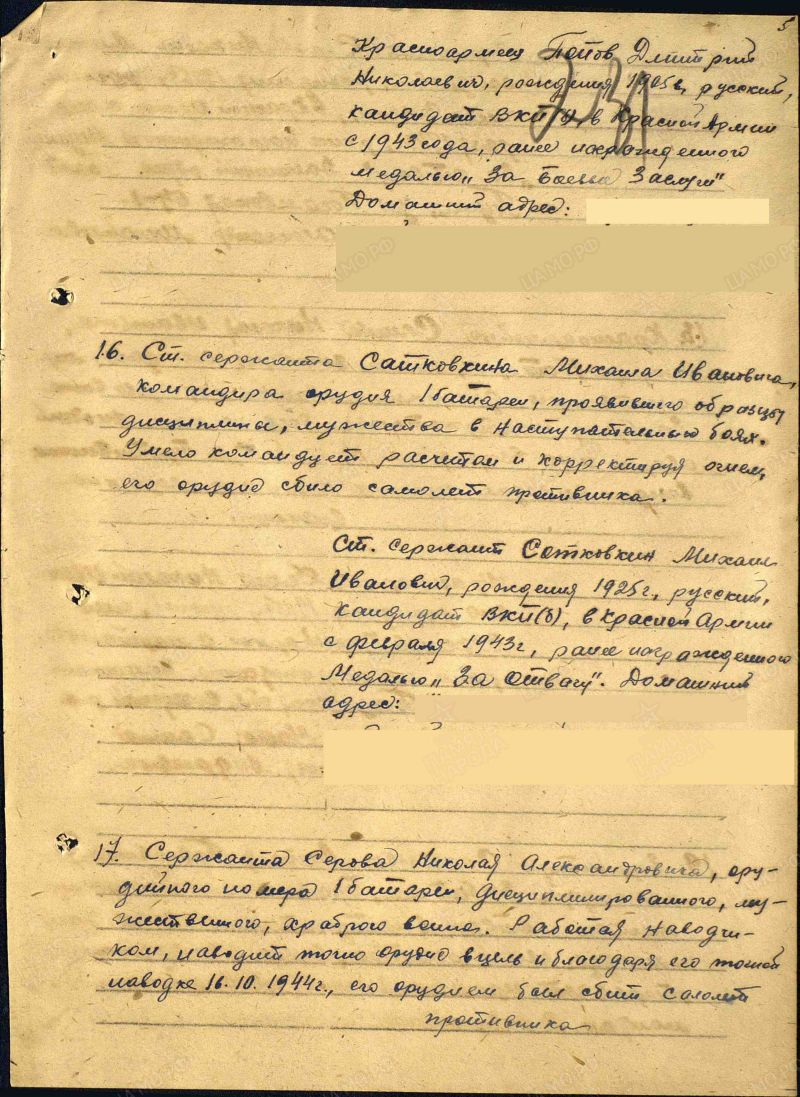 5
Красноармеец Попов Дмитрий
Николаевич, рождения 1905г, русский,
кандидат ВКП(б), в Красной Армии
с 1943 года, ранее награжденного
медалью „За Боевые Заслуги"
Домашний адрес:
16. Ст. сержанта Сатковкина Михаила Ивановича,
командира орудия 1 батареи, проявившего образцы
дисциплины, мужества в наступательных боях.
Умело командует расчетом и корректируя огнем,
его орудие сбило самолет противника.
Ст. сержант Сотковкин Михаил
Иванович, рождения 1925г, русский,
кандидат ВКП(б), в Красной Армии
с февраля 1943г, ранее награжденного
Медалью „За Отвагу". Домашний
адрес:
17. Сержанта Серова Николая Александровича, ору-
дийного номера 1 батареи, дисциплинированного, му-
жественного, храброго воина. Работая наводчи-
ком, наводит точно орудие в цель и благодаря его точной
наводке 16.10.1944г., его орудием был сбит самолет
противника